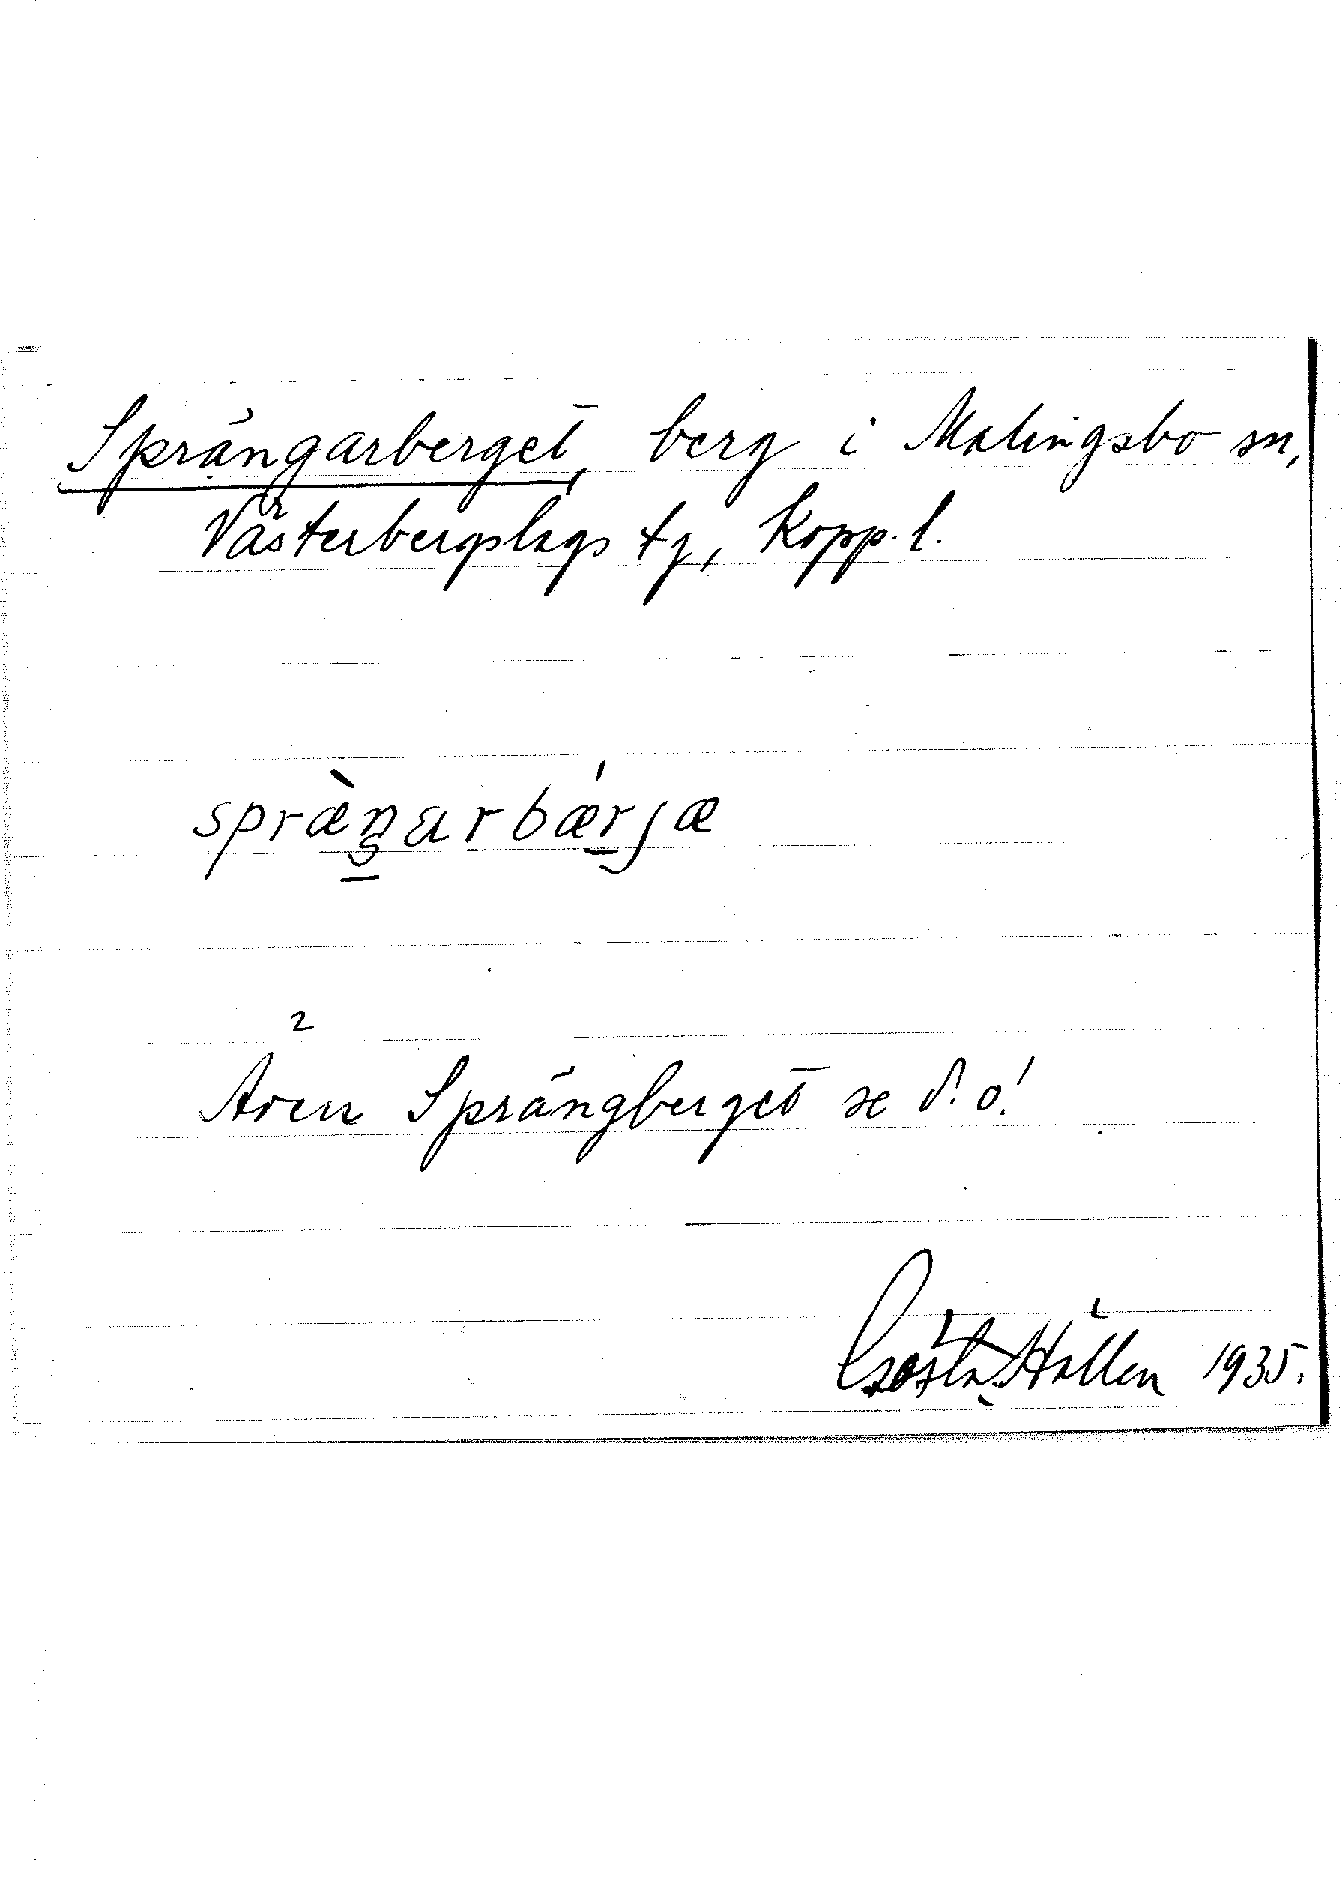 Sprängarberget, berg i Malingsbo sn,
Västerbergslags tg, Kopp. l.
spræ̀ŋarbǽrjæ
Även Sprängberget se d. o!
Gösta Hållen 1935.